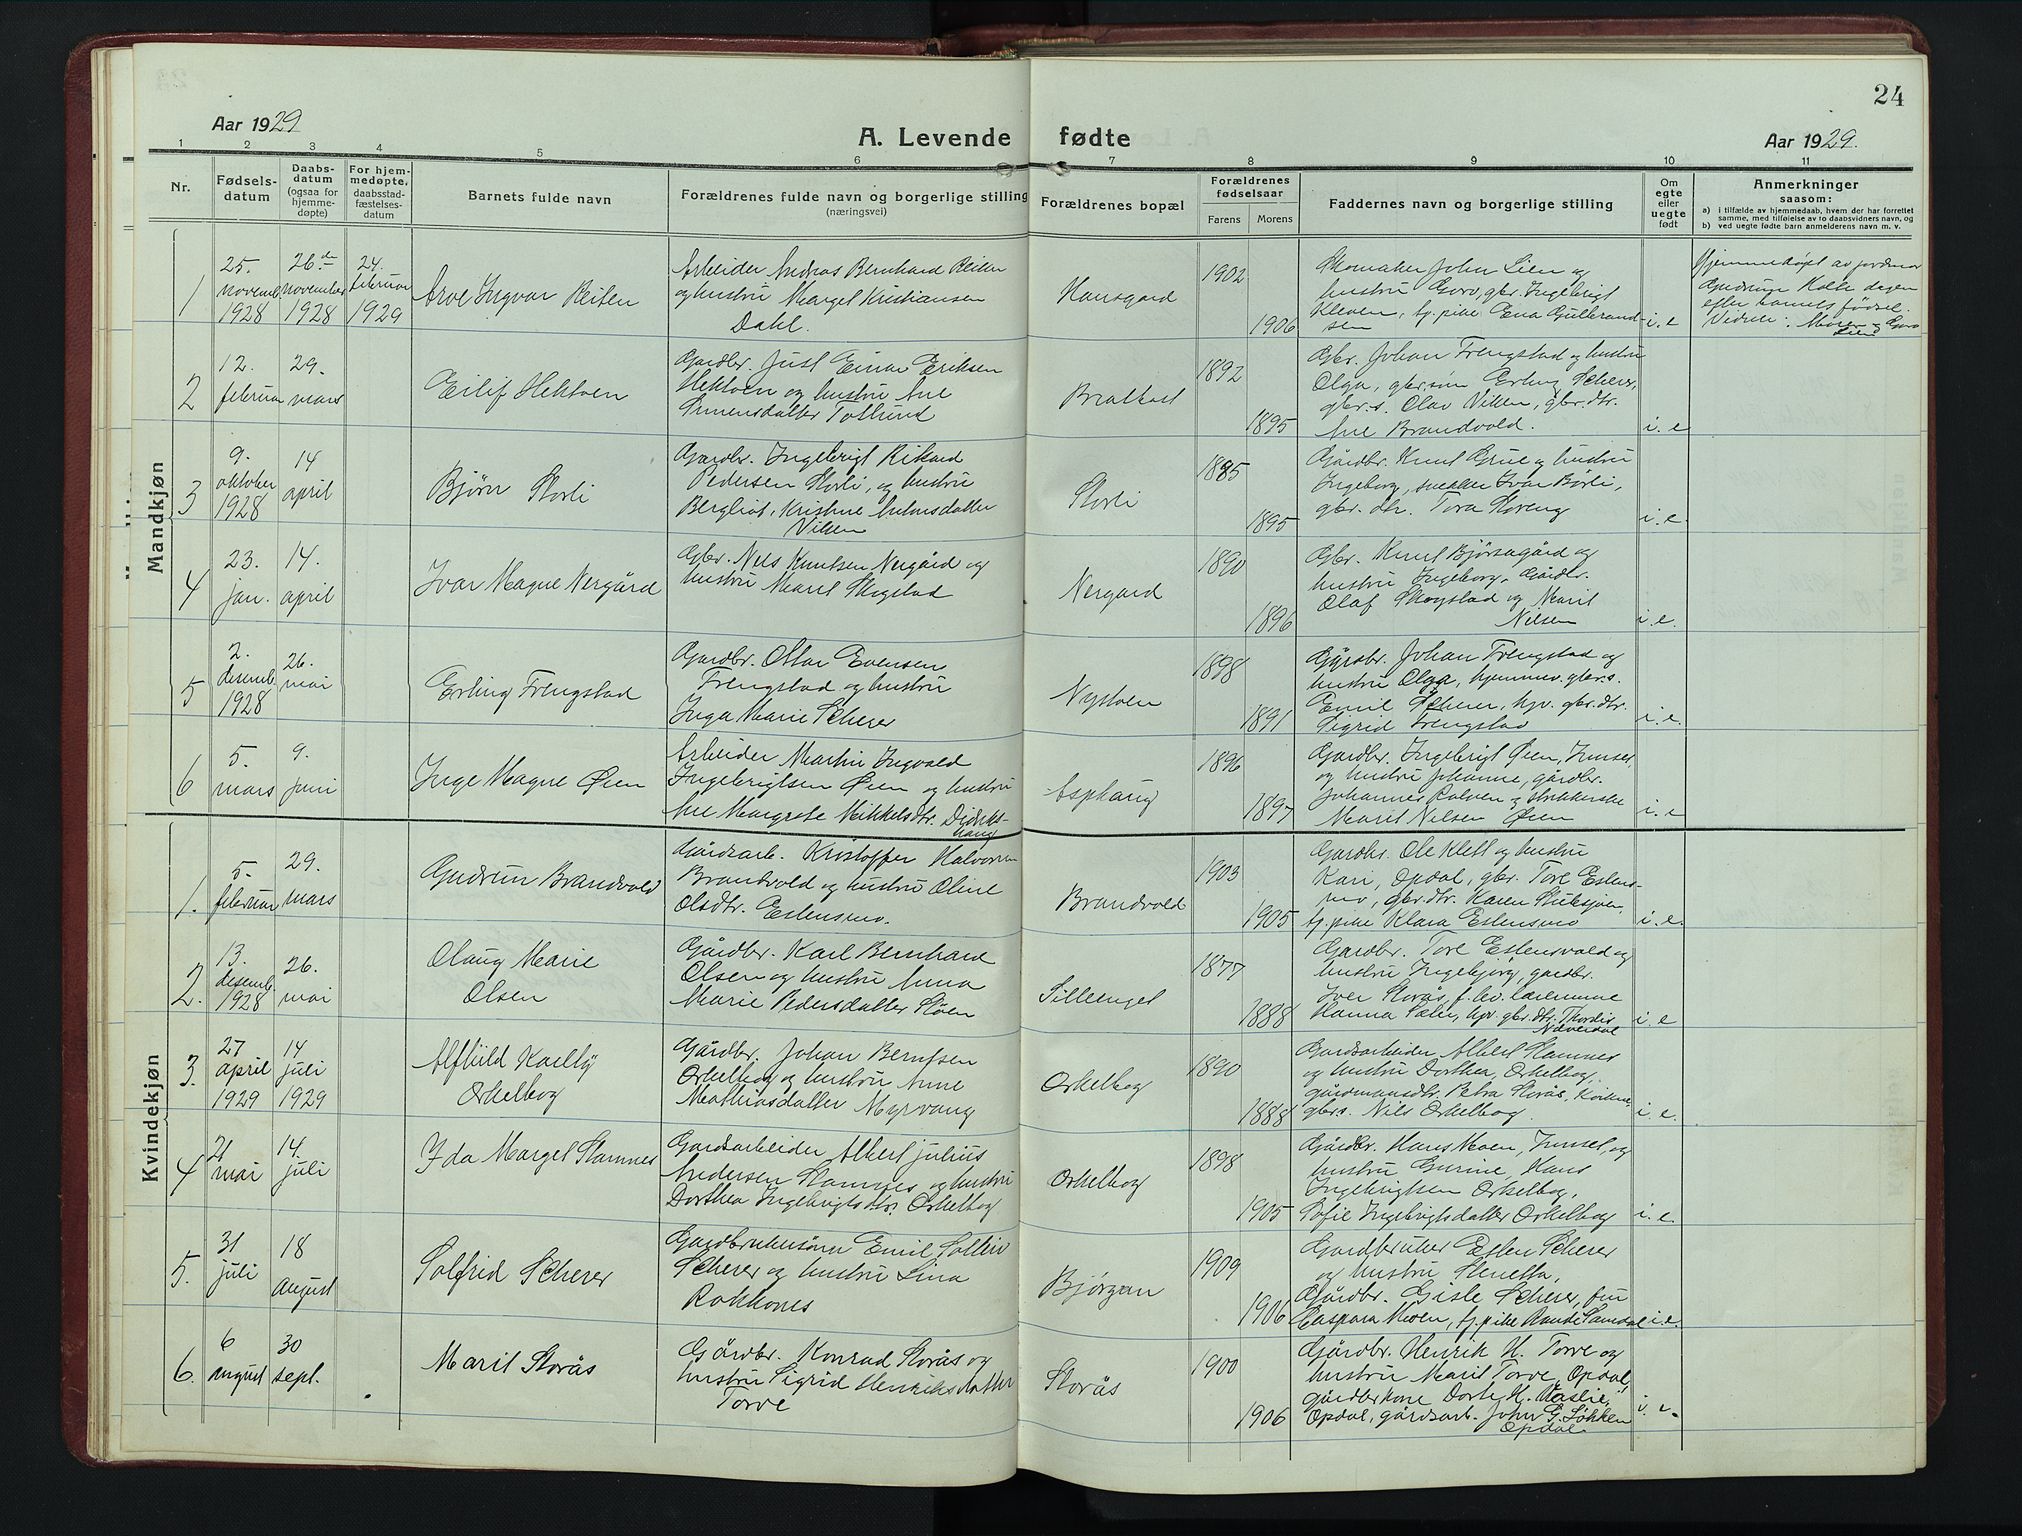 24
Aar 1929
A. Levende fødte
Aar 1929.
1 2 3 4 5 6 7 8 9 10 11
Nr.
Fødsels-
datum
Daabs-
datum
(ogsaa for
hjemme-
døpte)
For hjem-
medøpte,
daabsstad-
fæstelses-
datum
Barnets fulde navn
Forældrenes fulde navn og borgerlige stilling
(næringsvei)
Forældrenes bopæl
Forældrenes
fødselsaar
Farens Morens
Faddernes navn og borgerlige stilling
Om
egte
eller
uegte
født
Anmerkninger
saasom:
a) i tilfælde av hjemmedaab, hvem der har forrettet
samme, med tilføielse av to daabsvidners navn, og
b) ved uegte fødte barn anmelderens navn m. v.
Mandkjøn
1
25.
novemb.
1928
26de
november
1928
24.
februar
1929
Arve Ingvar Reiten
Arbeider Andras Bernhard Reiten
og hustru Marget Kristiansen
Dahl.
Hansgard
1902
1906
Skomaker John Lien og
hustru Goro, gbr. Ingebrigt
Kleven, tj. pike Ena Gulbrand-
sen
i. e
Hjemmedøpt av jordmor
Gudrun Kolte dagen
efter barnets fødsel.
Vidner: Moren og Goro
Lien
2
12.
februar
29.
mars
Eilif Hektoen
Gardbr. Just Einar Eriksen
Hektoen og hustru Ane
Simensdatter Tollund
Bratkast
1892
1895
Gbr. Johan Trengstad og hustru
Olga, gbr.søn Erling Scherer,
gbr.s. Olav Nilsen, gbr. dtr.
Ane Brandvold.
i. e
3
9.
oktober
1928
14
april
Bjørn Storli
Gardbr. Ingebrigt Rikard
Pedersen Storli, og hustru
Bergliot Kristine Antonsdatter
Nilsen
Storli
1885
1895
Gårdbr. Knut Grue og hustru
Ingeborg, snekker Ivar Børli,
gbr. dtr. Tora Storeng
i. e.
4
23.
jan.
14.
april
Ivar Magne Nergård
Gbr. Nils Knutsen Nergård og
hustru Marit Skogstad
Nergard
1890
1896
Gbr. Knut Bjørsagård og
hustru Ingeborg, Gårdbr.
Olaf Skogstad og Marit
Nilsen
i. e.
5
2.
desemb.
1928
26.
mai
Erling Trengstad
Gardbr. Ottar Evensen
Trengstad og hustru
Inga Marie Scherer
Nystoen
1898
1891
Gårdbr. Johan Trengstad og
hustru Olga, hjemmev. gbr.s.
Emil Scherer, hjv. gbr. dtr.
Sigrid Trengstad
i. e.
6
5.
mars
9.
juni
Inge Magne Øien
Arbeider Martin Ingvald
Ingebrigtsen Øien og hustru
Ane Margrete Mikkelsdtr. Didriks-
haug
Asphaug
1896
1897
Gardbr. Ingebrigt Øien, Innset,
og hustru Johanne, gårdbr.
Johannes Ralven og strikkerske
Marit Nilsen Øien
i. e
Kvindekjøn
1.
5.
februar
29.
mars
Gudrun Brandvold
Gårdsarb. Kristoffer Halvorsen
Brandvold og hustru Oline
Olsdtr. Estensmo.
Brandvold
1903
1905
Gardbr. Ole Klett og hustru
Kari, Opdal, gbr. Tore Estens-
mo, gbr. dtr. Karen Stubsjøen,
tj. pike Klara Estensmo
i. e.
2.
13.
desemb.
1928
26.
mai
Olaug Marie
Olsen
Gårdbr. Karl Bernhard
Olsen og hustru Anna
Marie Pedersdatter Støen
Silleenget
1877
1888
Gardbr. Tore Estensvold og
hustru Ingebjørg, gardbr.
Iver Storås, f. hv. lærerinne
Hanna Sæter, hjv. gbr. dtr. Thordis
Næverdal
i. e
3.
27
april
1929
14
juli
1929
Alfhild Karlby
Orkelbog
Gårdbr. Johan Berntsen
Orkelbog og hustru Anne
Mathiasdatter Myrvang
Orkelbog
1890
1888
Gardsarbeider Albert Stamnes
og hustru Dorthea, Orkelbog,
gårdmannsdtr. Petra Storås, Kvikne,
gbr.s. Nils Orkelbog.
i. e.
4
21
mai
14.
juli
Ida Marget Stamnes
Gardsarbeider Albert Julius
Andersen Stamnes og hustru
Dorthea Ingebrigtsdtr. Orkelbog
Orkelbog
1898
1905
Gårdbr. Hans Moen, Innset, og
hustru Gurine, Hans
Ingebrigtsen Orkelbog,
Sofie Ingebrigtsdatter Orkelbog
i. e.
5.
31
juli
18
august
Solfrid Scherer
Gardbrukersønn Emil
Scherer og hustru Lina
Rokkones
Bjørgan
1909
1906
Gardbruker Esten Scherer
og hustru Stenetta,
Gårdbr. Gisle Scherer, fru
Caspara Moen, tj. pike Randi Samdal
i. e.
6.
6
august
30
sept.
Marit Storås
Gårdbr. Konrad Storås og
hustru Sigrid Henriksdatter
Torve
Storås
1900
1906
Gårdbr. Henrik H. Torve og
hustru Marit Torve, Opdal,
gårdbr.kone Dorte H. Vaslie,
Opdal, gårdsarb. John G. Løkken
Opdal
i. e.